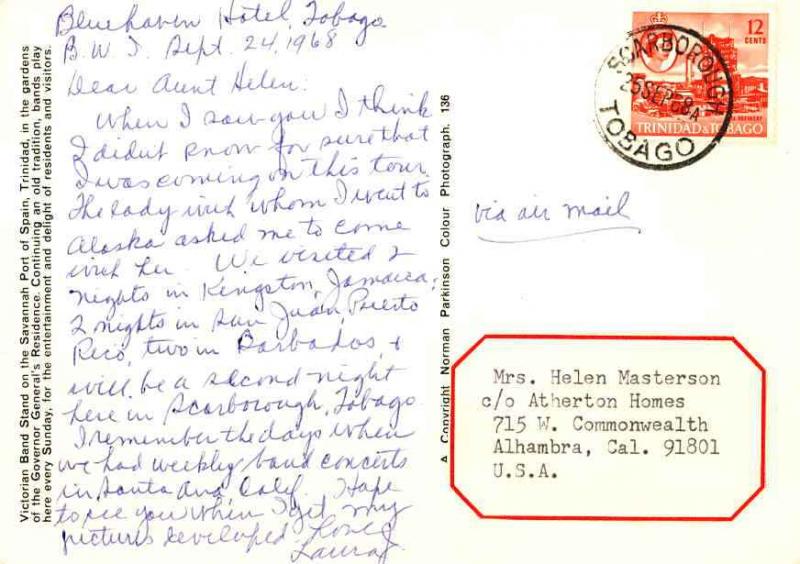 Victorian Band Stand on the Savannah Port of Spain, Trinidad, in the gardens
of the Governor General's Residence. Continuing an old tradition, bands play
here every Sunday, for the entertainment and delight of residents and visitors.
Bluehaven Hotel, Tobago
B.W.I. Sept. 24, 1968
Dear Aunt Helen:
When I saw you I think
I didn't know for sure that
I was coming on this tour.
The lady with whom I went to
Alaska asked me to come
with her. We visited 2
nights in Kingston, Jamaica;
2 nights in San Juan, Puerto
Rico, two in Barbados, +
will be a second night
here in Scarborough, Tobago
I remember the days when
we had weekly band concerts
in Santa Ana Calif. Hope
to see you when I get my
pictures developed. Love,
Laura
Copyright Norman Parkinson Colour Photograph. 136
12
CENTS
TRINIDAD & TOBAGO
SCARBOROUGH
25 SEP 68
A
TOBAGO
via air mail
Mrs. Helen Masterson
c/o Atherton Homes
715 W. Commonwealth
Alhambra, Cal. 91801
U.S.A.